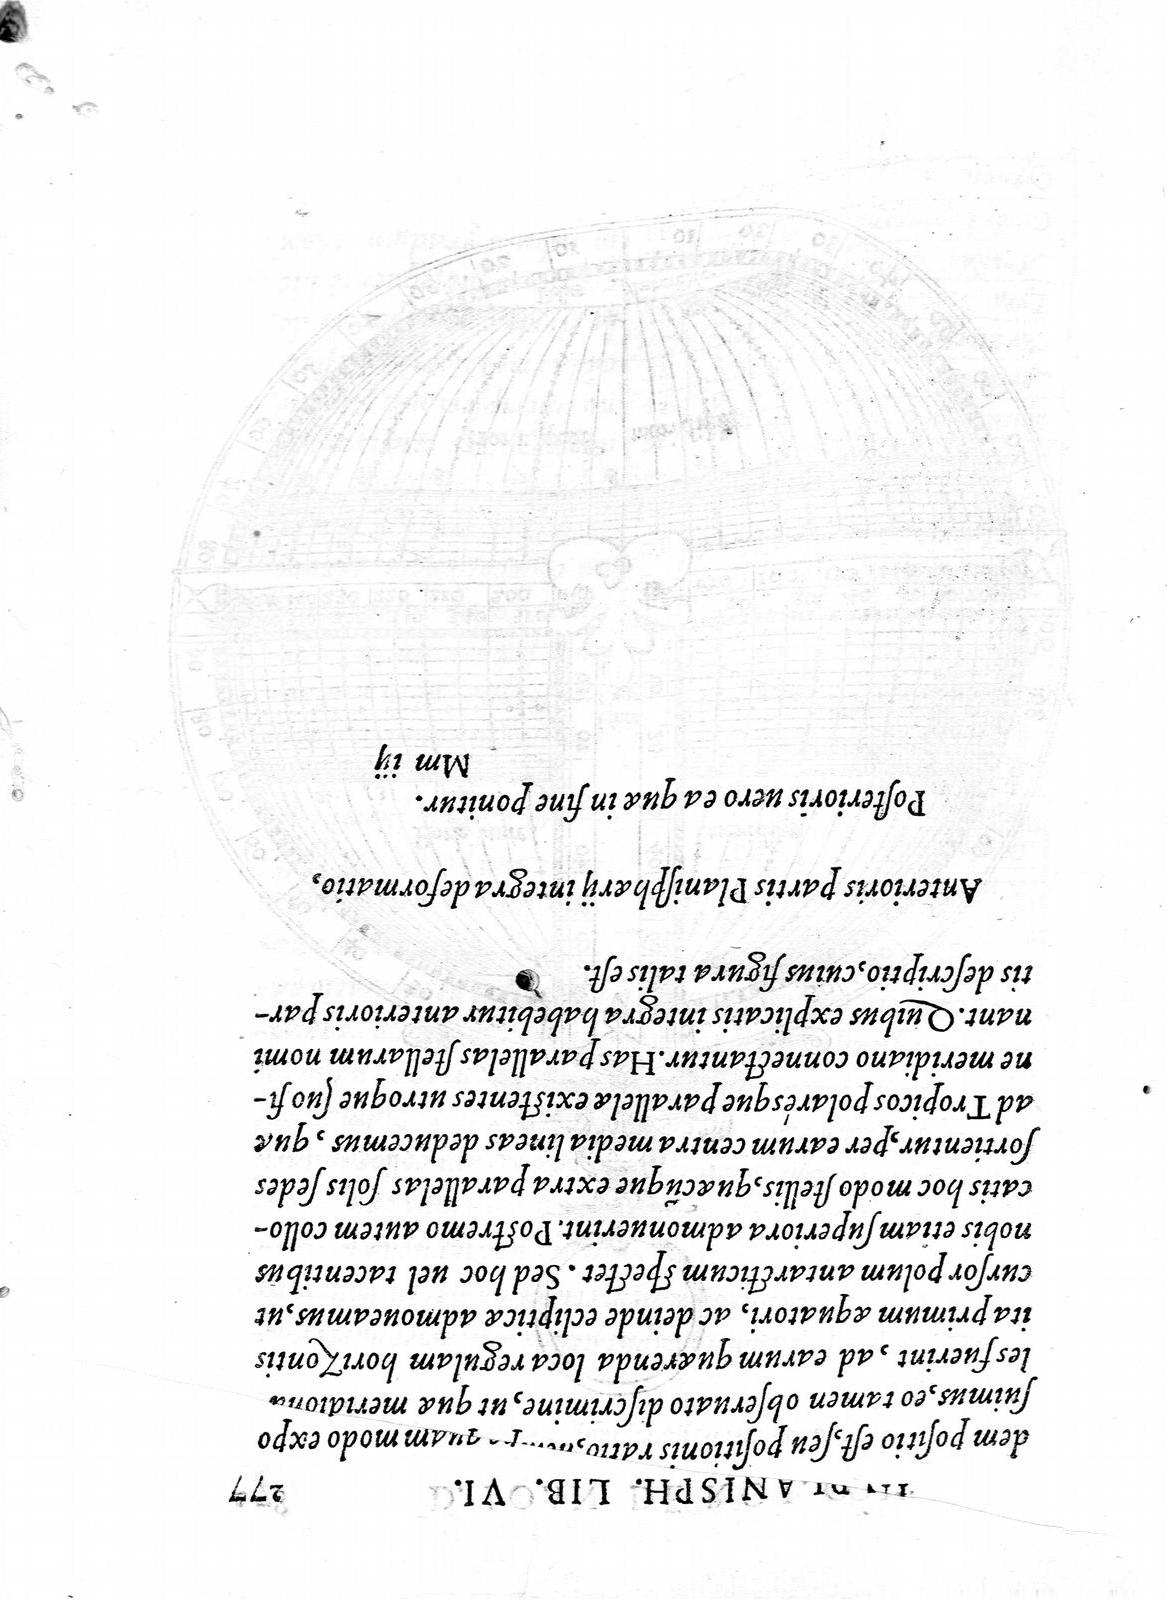 IN PLANISPH. LIB. VI. 277
dem poſitio eſt, ſeu poſitionis ratio, quam modo expo
ſuimus, eo tamen obſeruato diſcrimine, ut quæ meridiona
les fuerint, ad earum quærenda loca regulam horizontis
ita primum æquatori, ac deinde eclipticæ admoueamus, ut
curſor polum antarcticum ſpectet. Sed hoc uel tacentibus
nobis etiam ſuperiora admonuerint. Poſtremo autem collo-
catis hoc modo ſtellis, quæcūque extra parallelas ſolis ſedes
ſortientur, per earum centra media lineas deducemus, quæ
ad Tropicos polarésque parallelæ existentes utroque ſuo fi-
ne meridiano connectantur. Has parallelas ſtellarum nomi
nant. Quibus explicatis integra habebitur anterioris par-
tis deſcriptio, cuius figura talis eſt.
Anterioris partis Planiſphærij integra deformatio,
Poſterioris uero ea quæ in fine ponitur.
Mm iij